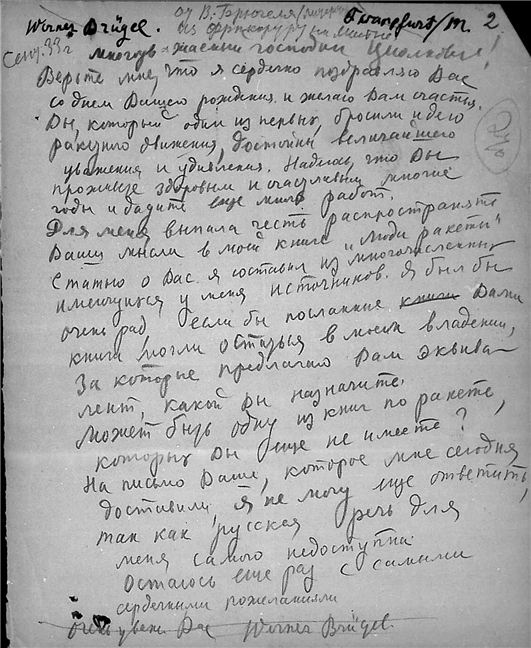 Werner Brügel. от В. Брюгеля Frankfurt/M. 2
из Франкфурта на Майне
Сент. 33 г многоуважаемый господин Циолковский!
Верьте мне, что я сердечно поздравляю Вас
со днем Вашего рождения и желаю Вам счастья.
Вы, который один из первых, бросили идею
ракетного движения, достойны величайшего
уважения и удивления. Надеюсь, что Вы
проживете здоровым и счастливым многие
годы и дадите еще много работ.
Для меня выпала честь распространять
Ваши мысли в моей книге „Люди ракеты"
Статью о Вас я составил из многочисленных
имеющихся у меня источников. Я был бы
очень рад если бы посланные книги Вами
книги могли остаться в моем владении,
За которые предлагаю Вам эквива-
лент, какой Вы назначите.
Может быть одну из книг по ракете,
которых Вы еще не имеете?
На письмо Ваше, которое мне сегодня
доставили, я не могу еще ответить
так как русская речь для
меня самого недоступна.
Остаюсь еще раз с самыми
сердечными пожеланиями
очень уваж. Вас Werner Brügel.